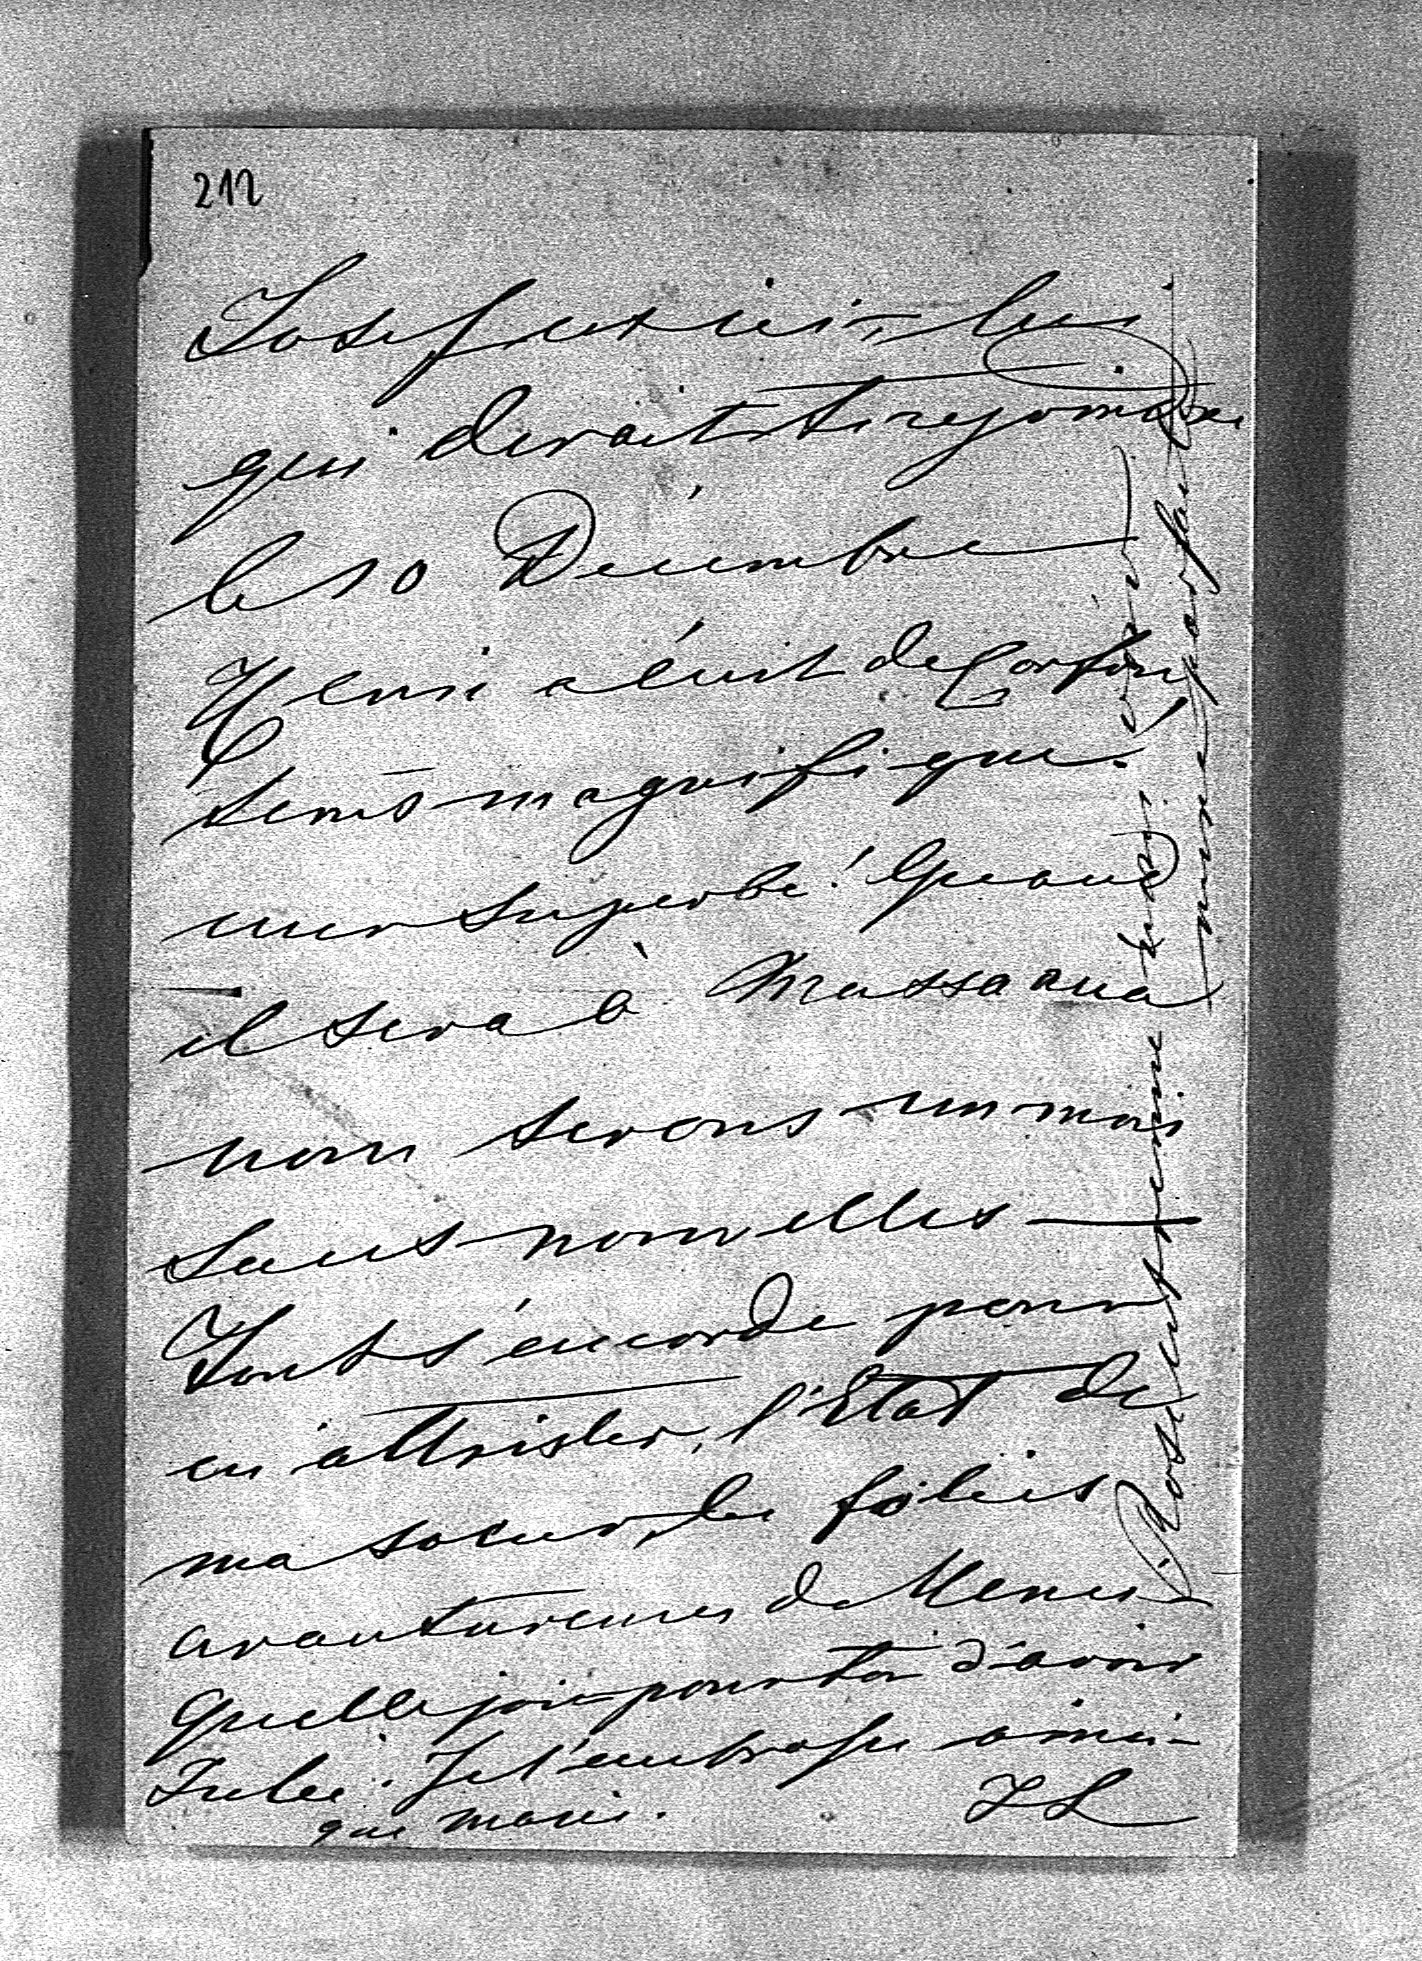 212
Josef est ici - lui
qui devait te rejoindre
le 10 Décembre
Henri a écrit de Corfou,
tems magnifique.
mer superbe! Quand
il sera à Massaoua
nous serons un mois
sans nouvelles —
Tout s'accorde pour
m'attrister, l'Etat de
ma soeur, les folies
de Henri
Quelle joie pour toi d'avoir
Julie. Je t'embrasse ainsi
que Marie. LL